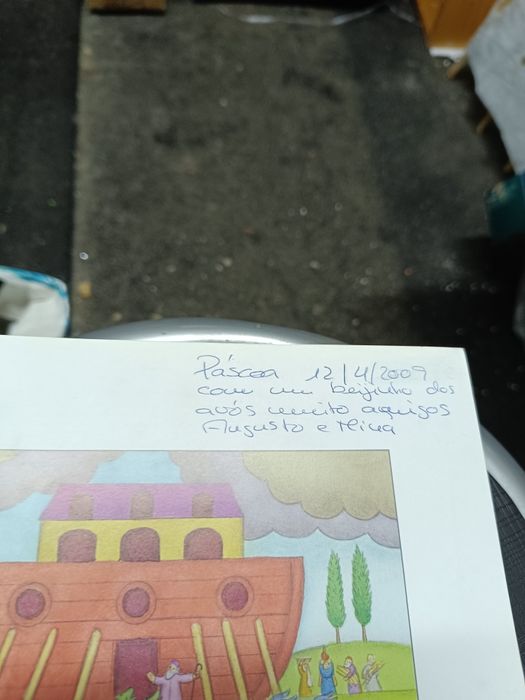 Páscoa 12/4/2009
com um beijinho dos
avós muito amigos
Augusto e Mina